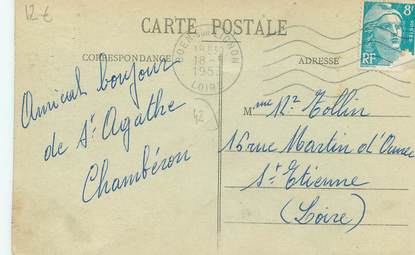 12 €
CARTE POSTALE
CORRESPONDANCE
ADRESSE
18
195
LOIRE
8F
RF
Amical bonjour
de St Agathe
Chambéron
42
Mme Mr Tollin
16 rue Martin d'
St Etienne
(Loire)